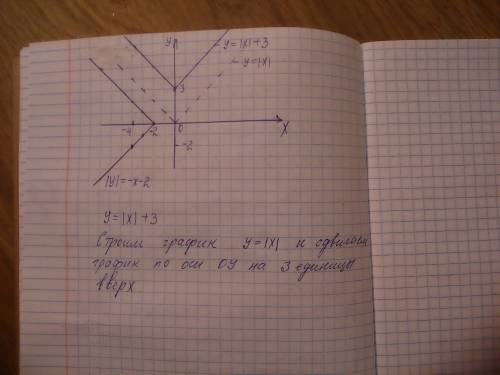 y
y=|x|+3
y=|x|
3
-4
-2
0
x
-2
|y|=-x-2
y=|x|+3
Строим график y=|x| и сдвигаем
график по оси OY на 3 единицы
вверх